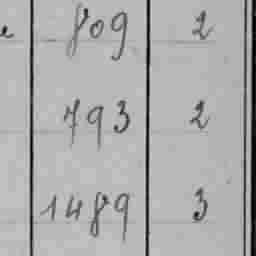 809 2
793 2
1489 3